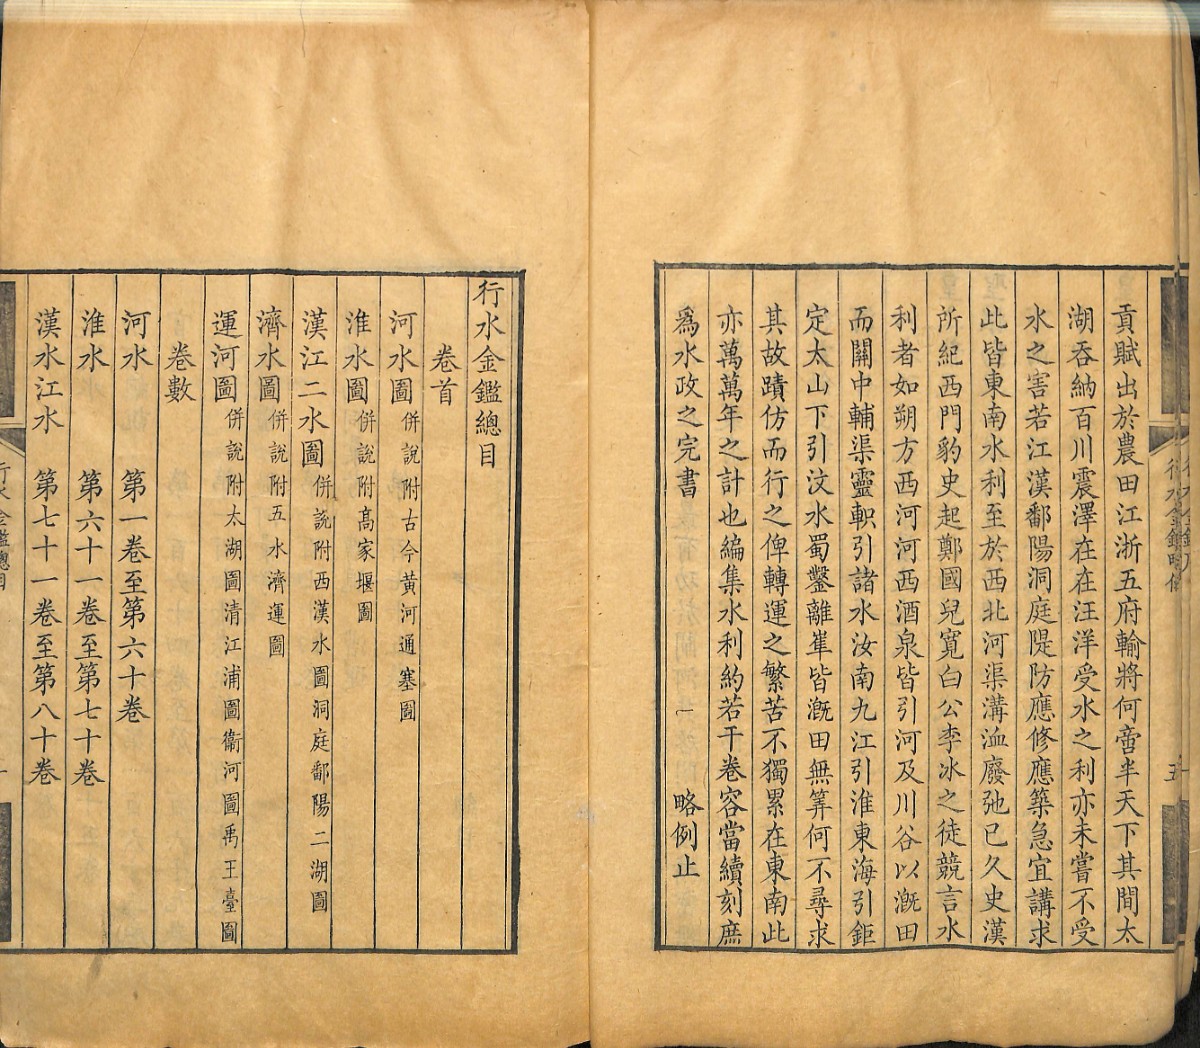 貢賦出於農田江浙五府輸將何啻半天下其間太
湖吞納百川震澤在在汪洋受水之利亦未嘗不受
水之害若江漢鄱陽洞庭隄防應修應築急宜講求
此皆東南水利至於西北河渠溝洫廢弛已久史漢
所紀西門豹史起鄭國兒寬白公李冰之徒競言水
利者如朔方西河河西酒泉皆引河及川谷以漑田
而關中輔渠靈軹引諸水汝南九江引淮東海引鉅
定太山下引汶水蜀鑿離崔皆漑田無筭何不尋求
其故蹟仿而行之俾轉運之繁苦不獨累在東南此
亦萬萬年之計也編集水利約若干卷容當續刻庶
爲水政之完書 略例止
五
行水金鑑總目
卷首
河水圖 併說附古今黃河通塞圖
淮水圖 併說附高家堰圖
漢江二水圖 併說附西漢水圖洞庭鄱陽二湖圖
濟水圖 併說附五水濟運圖
運河圖 併說附太湖圖清江浦圖衞河圖禹王臺圖
卷數
河水 第一卷至第六十卷
淮水 第六十一卷至第七十卷
漢水江水 第七十一卷至第八十卷
行水金鑑總目